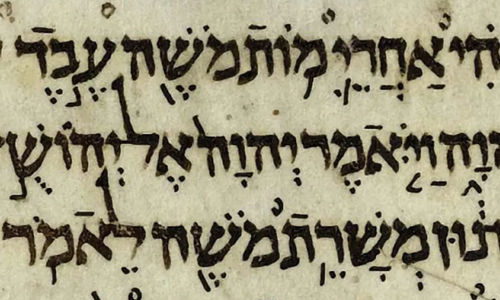 הִי אַחֲרֵי מוֹת מֹשֶׁה עֶבֶד
וָה וַיֹּאמֶר יְהוָה אֶל יְהוֹשֻׁ
נוּן מְשָׁרֵת מֹשֶׁה לֵאמֹר